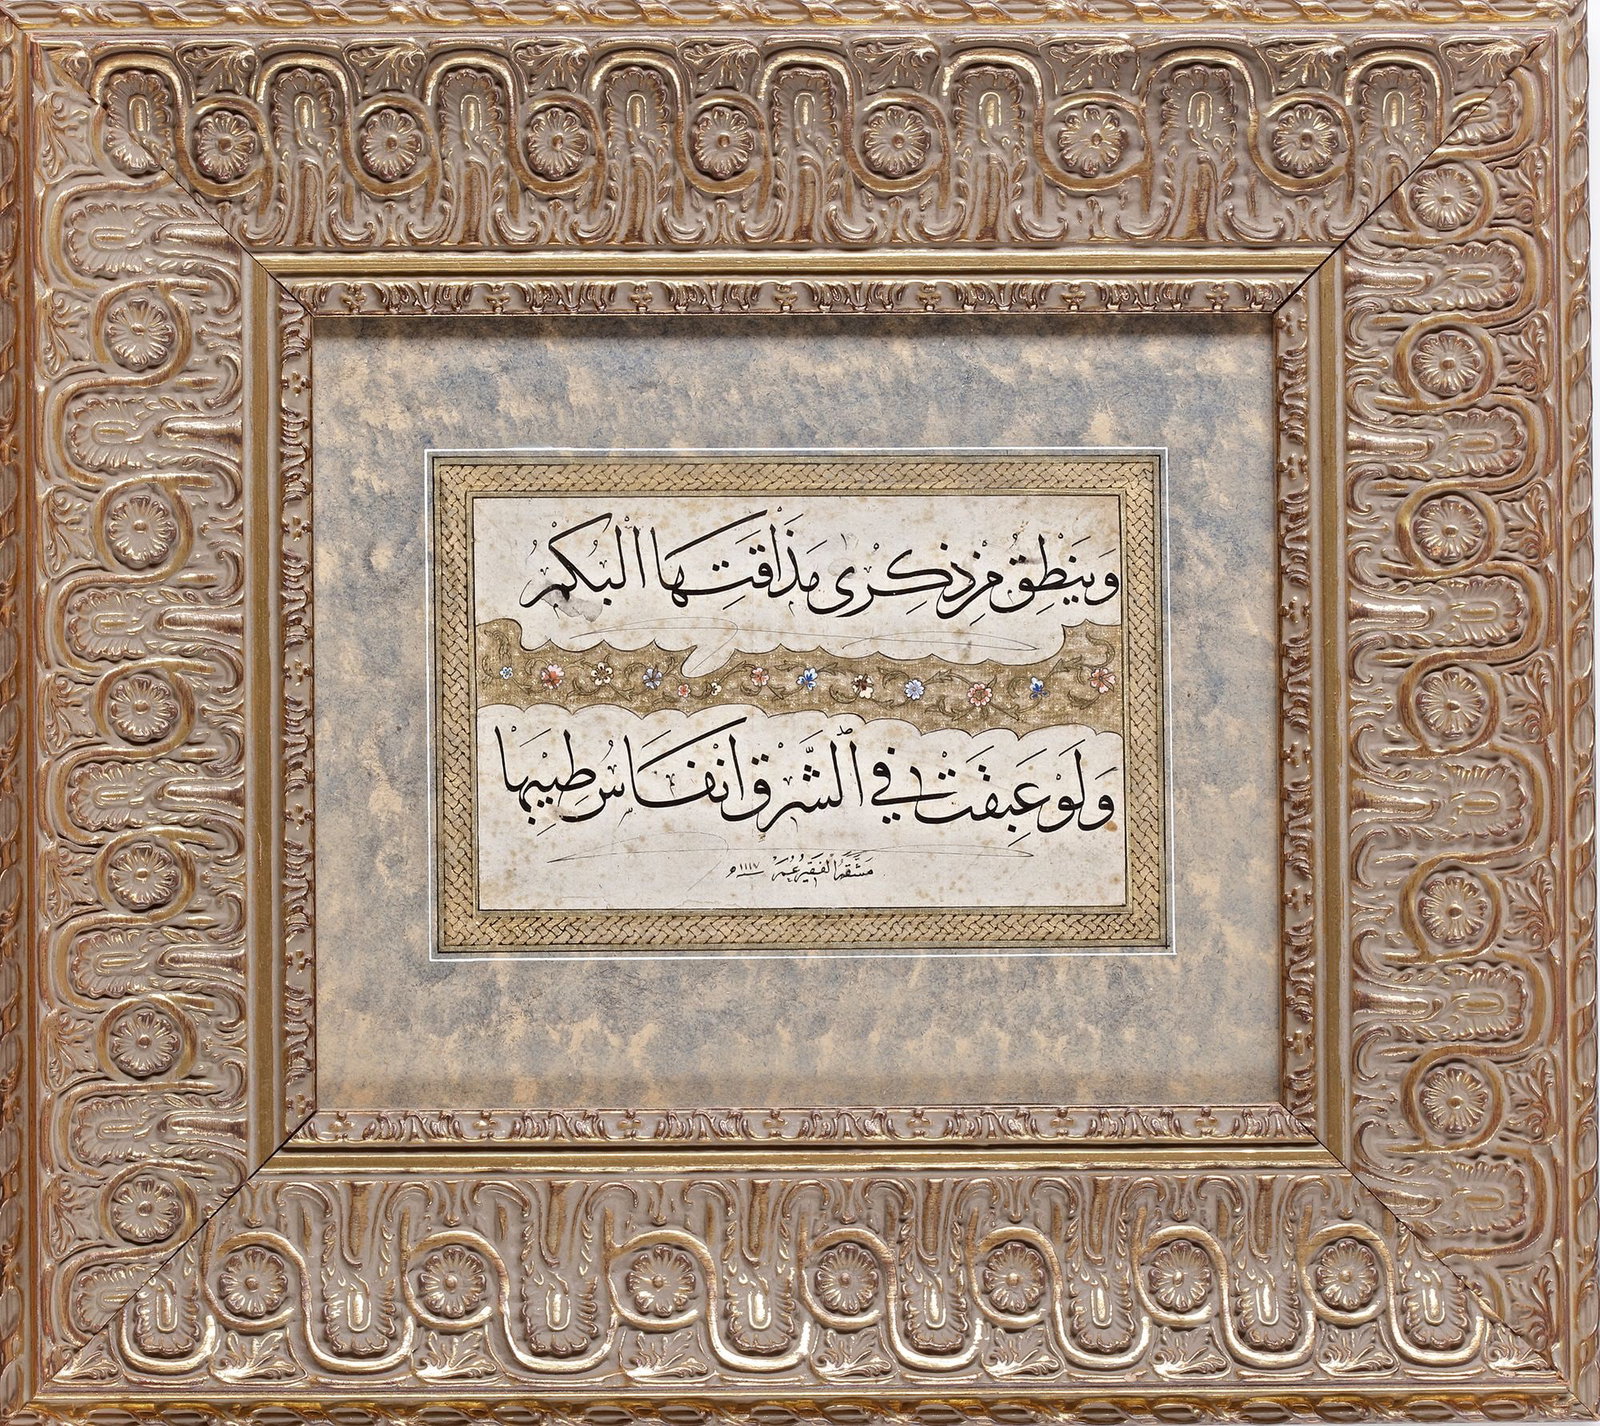 وَيَنْطِقُ مِنْ ذِكْرٰى مَذَاقَتِهَا الْبُكْمُ
وَلَوْ عَبِقَتْ فِي الشَّرْقِ اَنْفَاسُ طِيبِهَا
مَشَقَهُ الْفَقِيرُ عُمَرْ ١١١٧ م